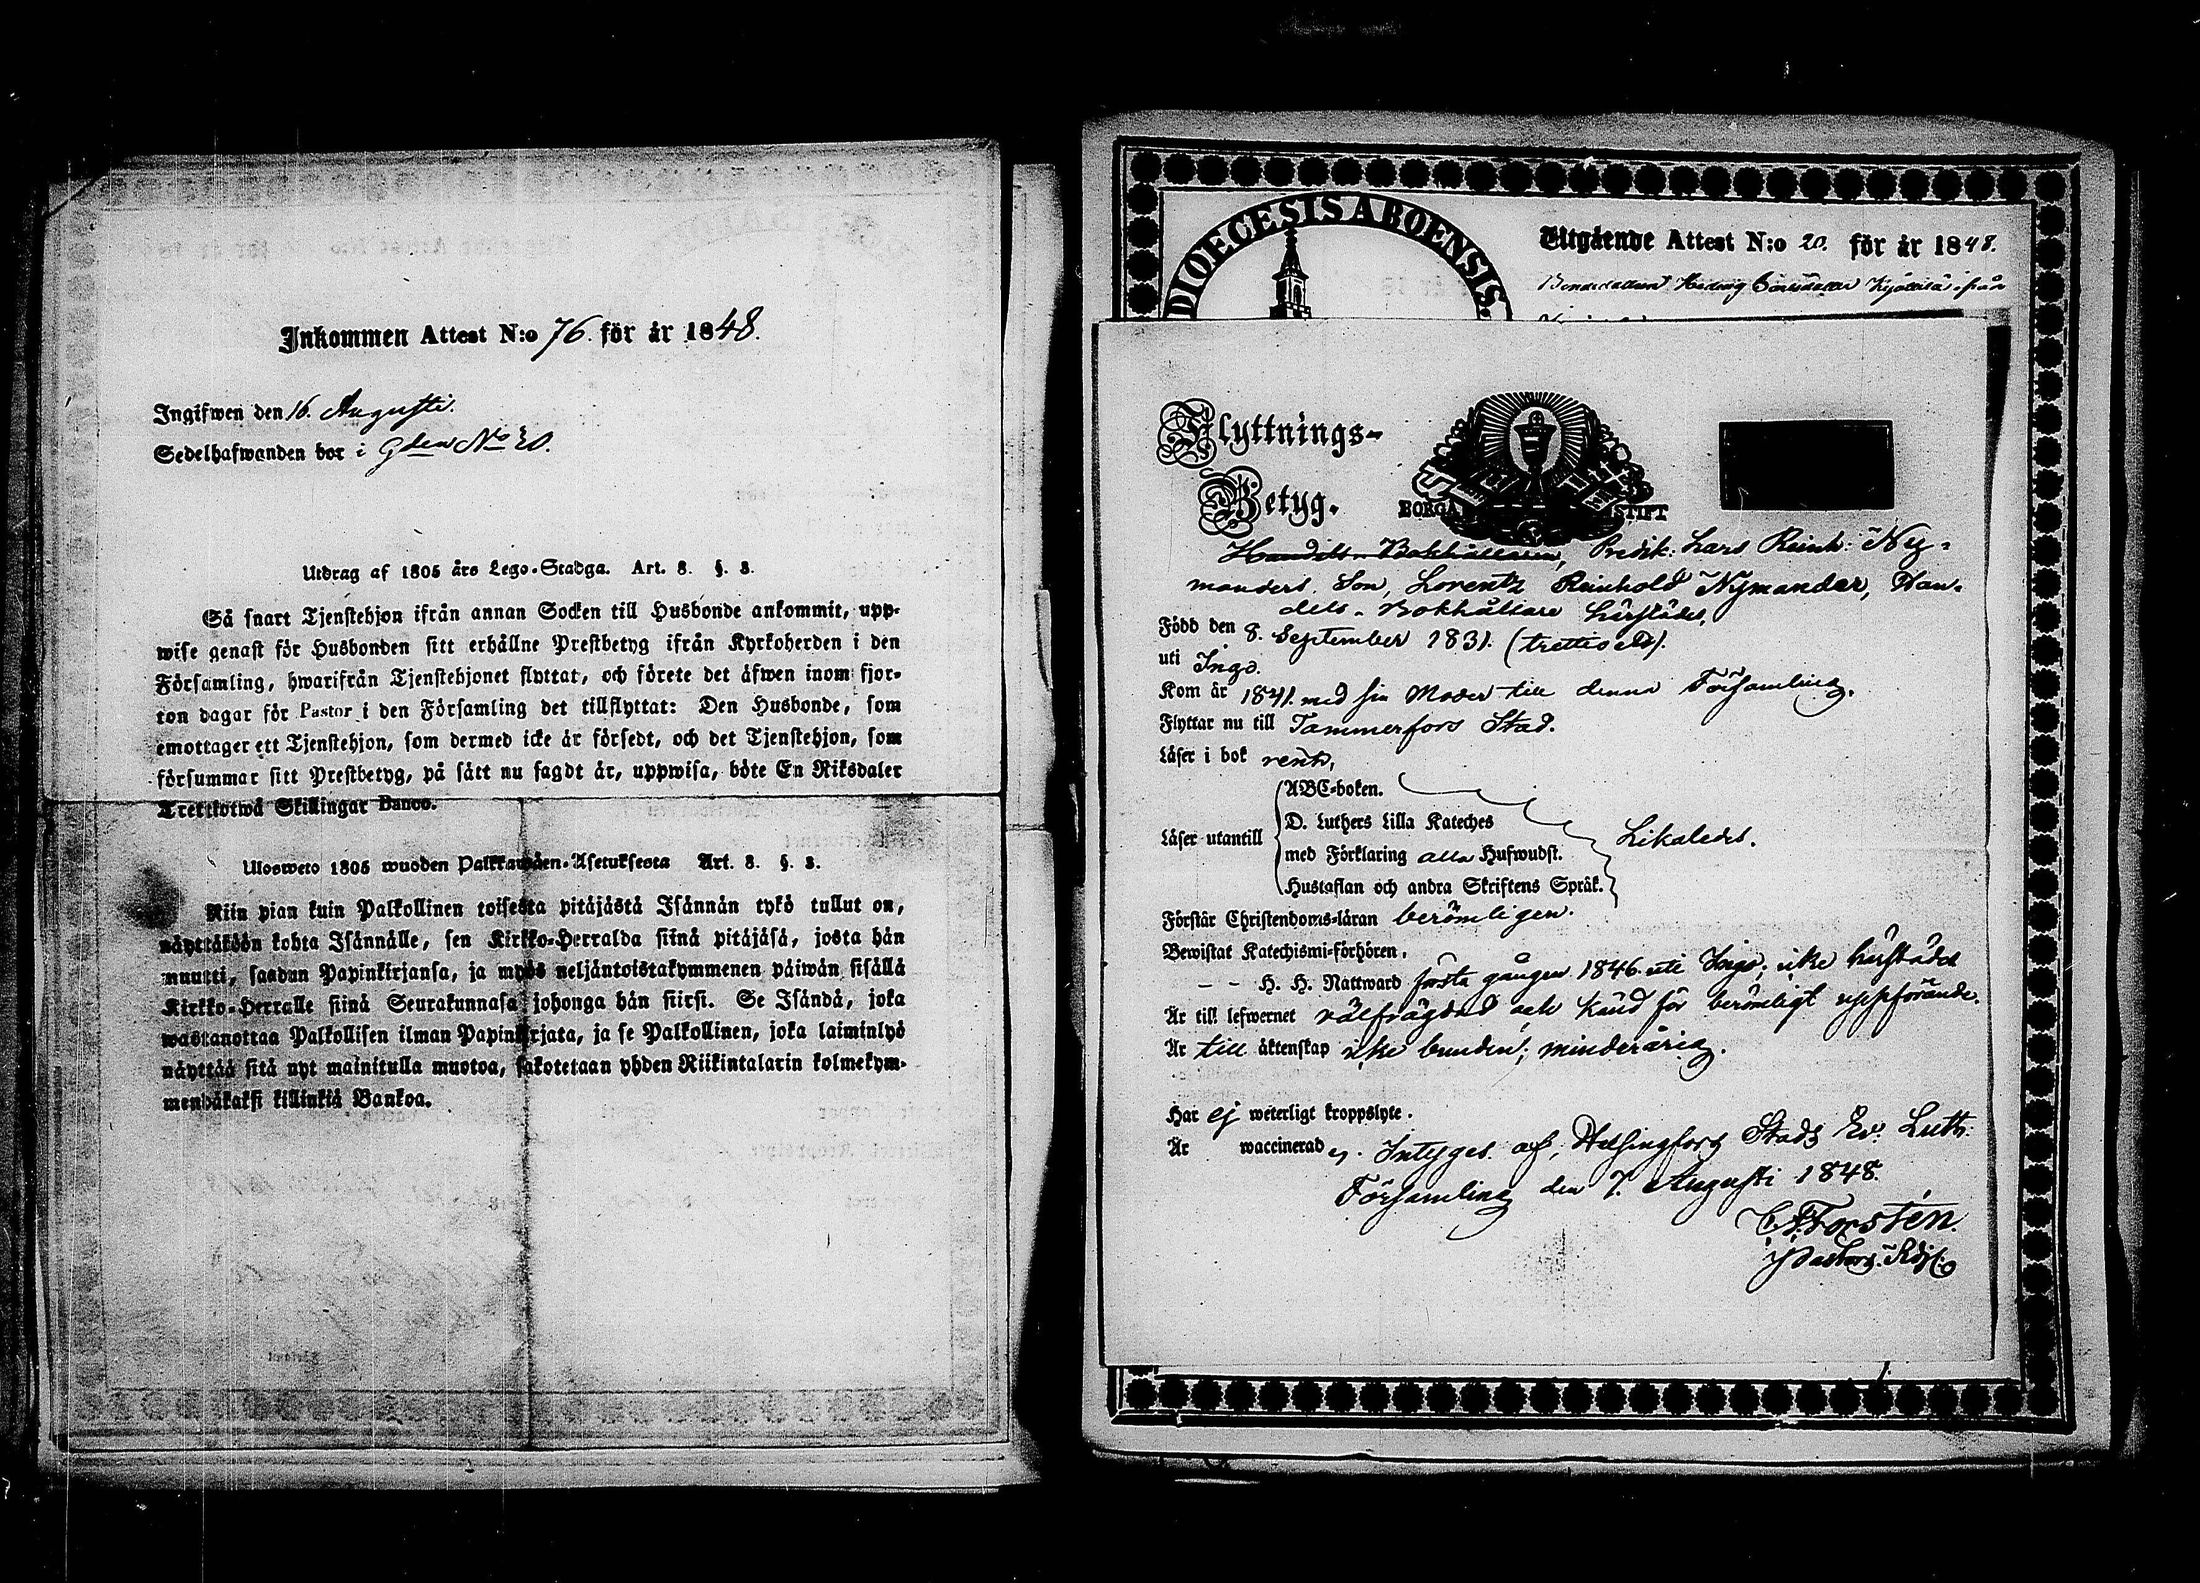 Inkommen Attest N:o 76. för år 1848.
Ingifwen den 16. Augusti.
Sedelhafwanden bor i Gden No 20.
Utdrag af 1805 års Lego-Stadga. Art. 8. §. 3.
Så snart Tjenstehjon ifrån annan Socken till Husbonde ankommit, upp-
wise genast för Husbonden sitt erhållne Prestbetyg ifrån Kyrkoherden i den
Församling, hwarifrån Tjenstehjonet flyttat, och förete det äfwen inom fjor-
ton dagar för Pastor i den Församling det tillflyttat: Den Husbonde, som
emottager ett Tjenstehjon, som dermed icke är försedt, och det Tjenstehjon, som
försummar sitt Prestbetyg, på sätt nu sagdt är, uppwisa, böte En Riksdaler
Trettiotwå Skillingar Banco.
Ulosweto 1805 wuoden Palkkawäen-Asetuksesta Art. 8. §. 3.
Niin pian kuin Palkollinen toisesta pitäjästä Isännän tykö tullut on,
näyttäköön kohta Isännälle, sen Kirkko-Herralda siinä pitäjäsä, josta hän
muutti, saadun Papinkirjansa, ja myös neljäntoistakymmenen päiwän sisällä
Kirkko-Herralle siinä Seurakunnasa johonga hän siirsi. Se Isändä, joka
wastanottaa Palkollisen ilman Papinkirjata, ja se Palkollinen, joka laiminlyö
näyttää sitä nyt mainitulla muotoa, sakotetaan yhden Riikintalarin kolmekym-
mendäkaksi killinkiä Bankoa.
DIOECESIS ABOENSIS.
Utgående Attest N:o 20. för år 1848.
Bondedottren Hedvig ifrån
Flyttnings-
Betyg.
BORGÅ STIFT
Handels-Bokhållaren, Predik: Lars Reinh: Ny-
manders Son, Lorentz Reinhold Nymander, Han-
dels-Bokhållare härstädes,
Född den 8. September 1831. (trettioett).
uti Ingo.
Kom år 1841. med sin Moder till denna Församling.
Flyttar nu till Tammerfors Stad.
Läser i bok rent,
ABC-boken.
D. Luthers Lilla Kateches
Läser utantill
med Förklaring alla Hufwudst.
Likaledes.
Hustaflan och andra Skriftens Språk.
Förstår Christendoms-läran berömligen.
Bewistat Katechismi-förhören,
– – H. H. Nattward första gången 1846. uti Ingo, icke härstädes
Är till lefwernet välfrägdad och känd för berömligt uppförande.
Är till äktenskap icke bunden; minderårig.
Har ej weterligt kroppslyte.
Är waccinerad, Intygas af, Helsingfors Stads Ev. Luth.
Församling den 7. Augusti 1848.
Forstén